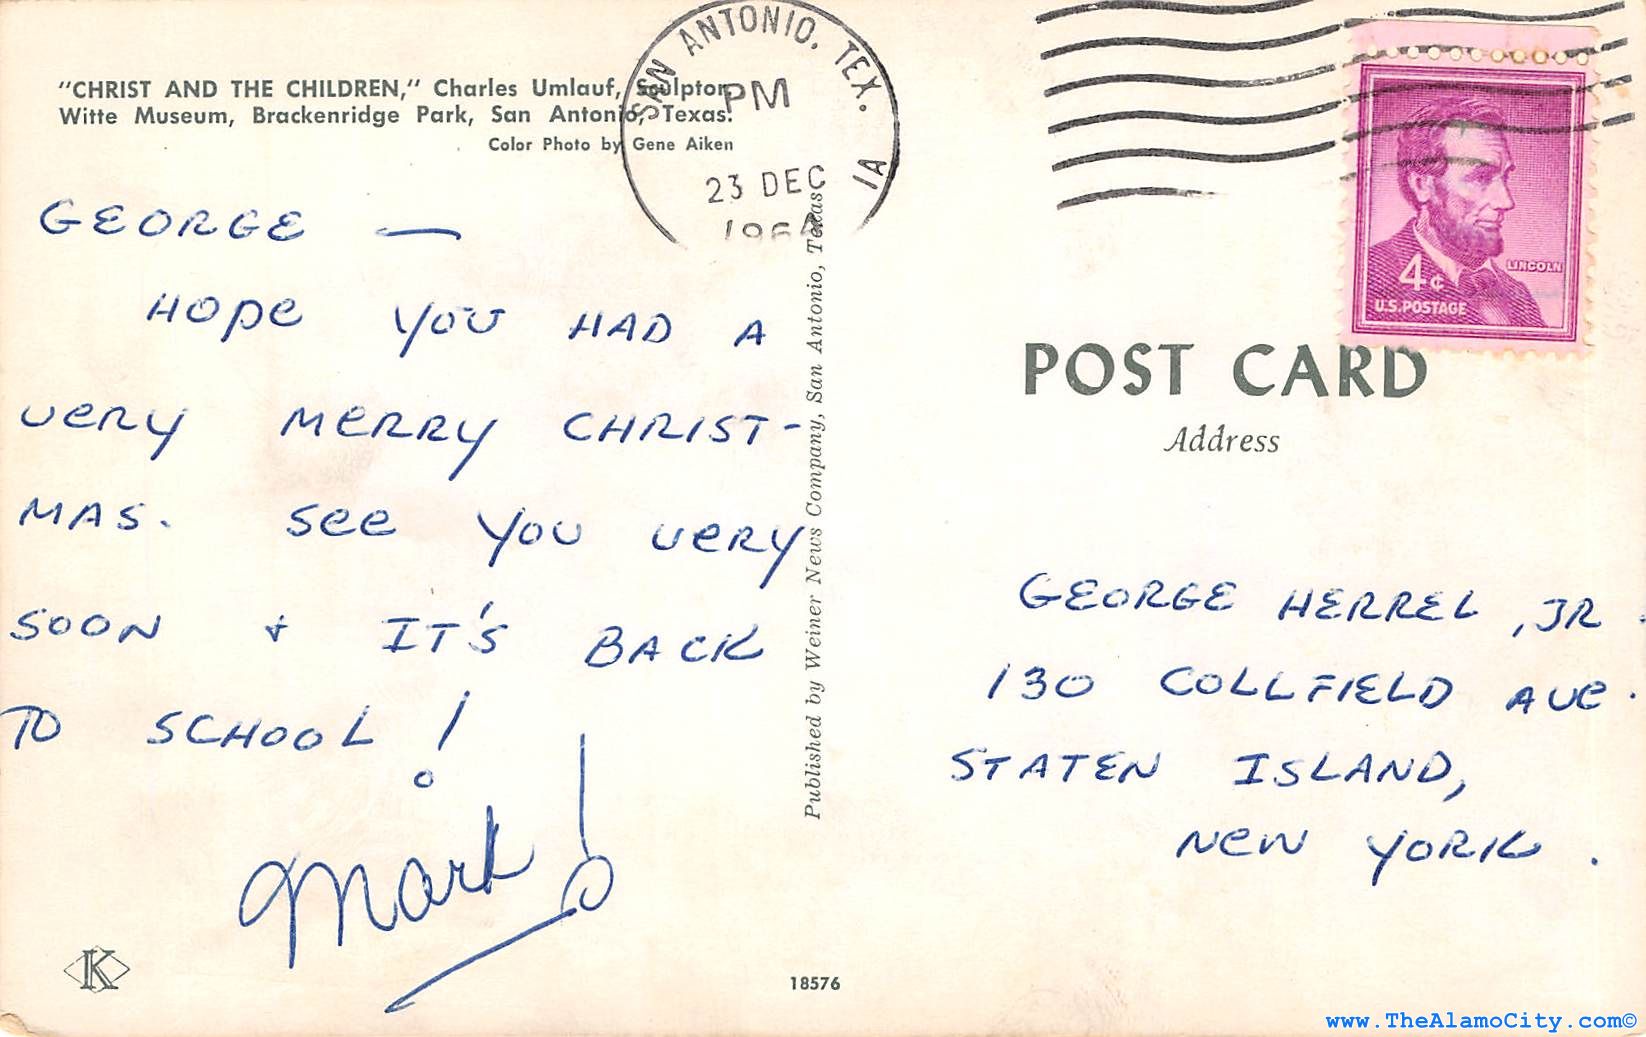 "CHRIST AND THE CHILDREN," Charles Umlauf, Sculptor
Witte Museum, Brackenridge Park, San Antonio, Texas.
Color Photo by Gene Aiken
SAN ANTONIO, TEX.
PM
1A
23 DEC
GEORGE —
HOPE YOU HAD A
VERY MERRY CHRIST-
MAS. SEE YOU VERY
SOON + IT'S BACK
TO SCHOOL!
Mark!
K
Published by Weiner News Company, San Antonio, Texas
18576
LINCOLN
4¢
U.S. POSTAGE
POST CARD
Address
GEORGE HERREL, JR.
130 COLLFIELD AVE.
STATEN ISLAND,
NEW YORK.
www.TheAlamoCity.com©